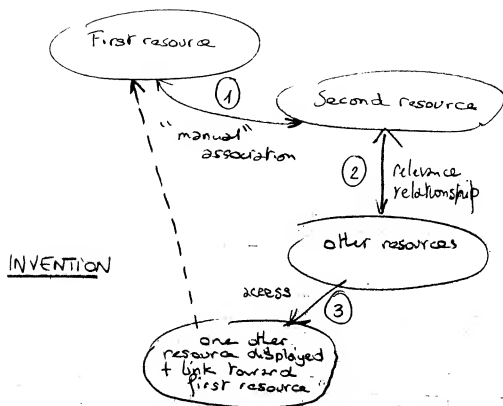 First resource
1
Second resource
"manual"
association
2
relevance
relationship
other resources
INVENTION
access
3
one other
resource displayed
+ link toward
first resource